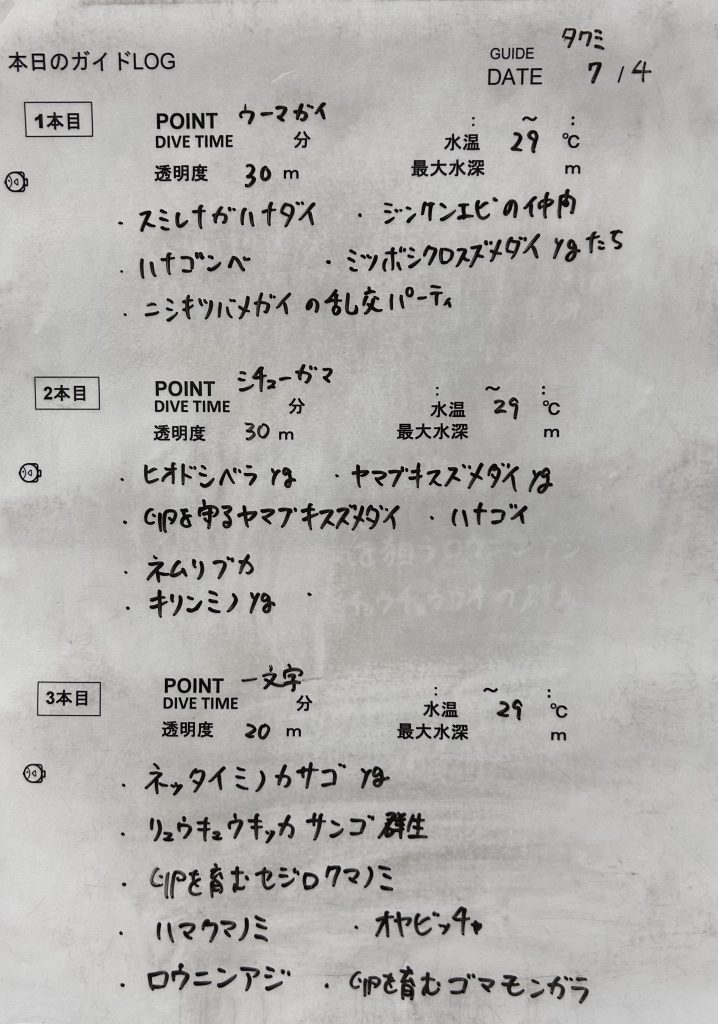 本日のガイドLOG
GUIDE タクミ
DATE 7 / 4
1本目
POINT ウーマガイ : ~ :
DIVE TIME 分 水温 29 ℃
透明度 30 m 最大水深 m
・スミレナガハナダイ ・ジンケンエビの仲間
・ハナゴンベ ・ミツボシクロスズメダイ ygたち
・ニシキツバメガイの乱交パーティ
2本目
POINT シチューガマ : ~ :
DIVE TIME 分 水温 29 ℃
透明度 30 m 最大水深 m
・ヒオドシベラ yg ・ヤマブキスズメダイ yg
・卵を守るヤマブキスズメダイ ・ハナゴイ
・ネムリブカ
・キリンミノ yg ・
3本目
POINT 一文字 : ~ :
DIVE TIME 分 水温 29 ℃
透明度 20 m 最大水深 m
・ネッタイミノカサゴ yg
・リュウキュウキッカサンゴ群生
・卵を育むセジロクマノミ
・ハマクマノミ ・オヤビッチャ
・ロウニンアジ ・卵を育むゴマモンガラ